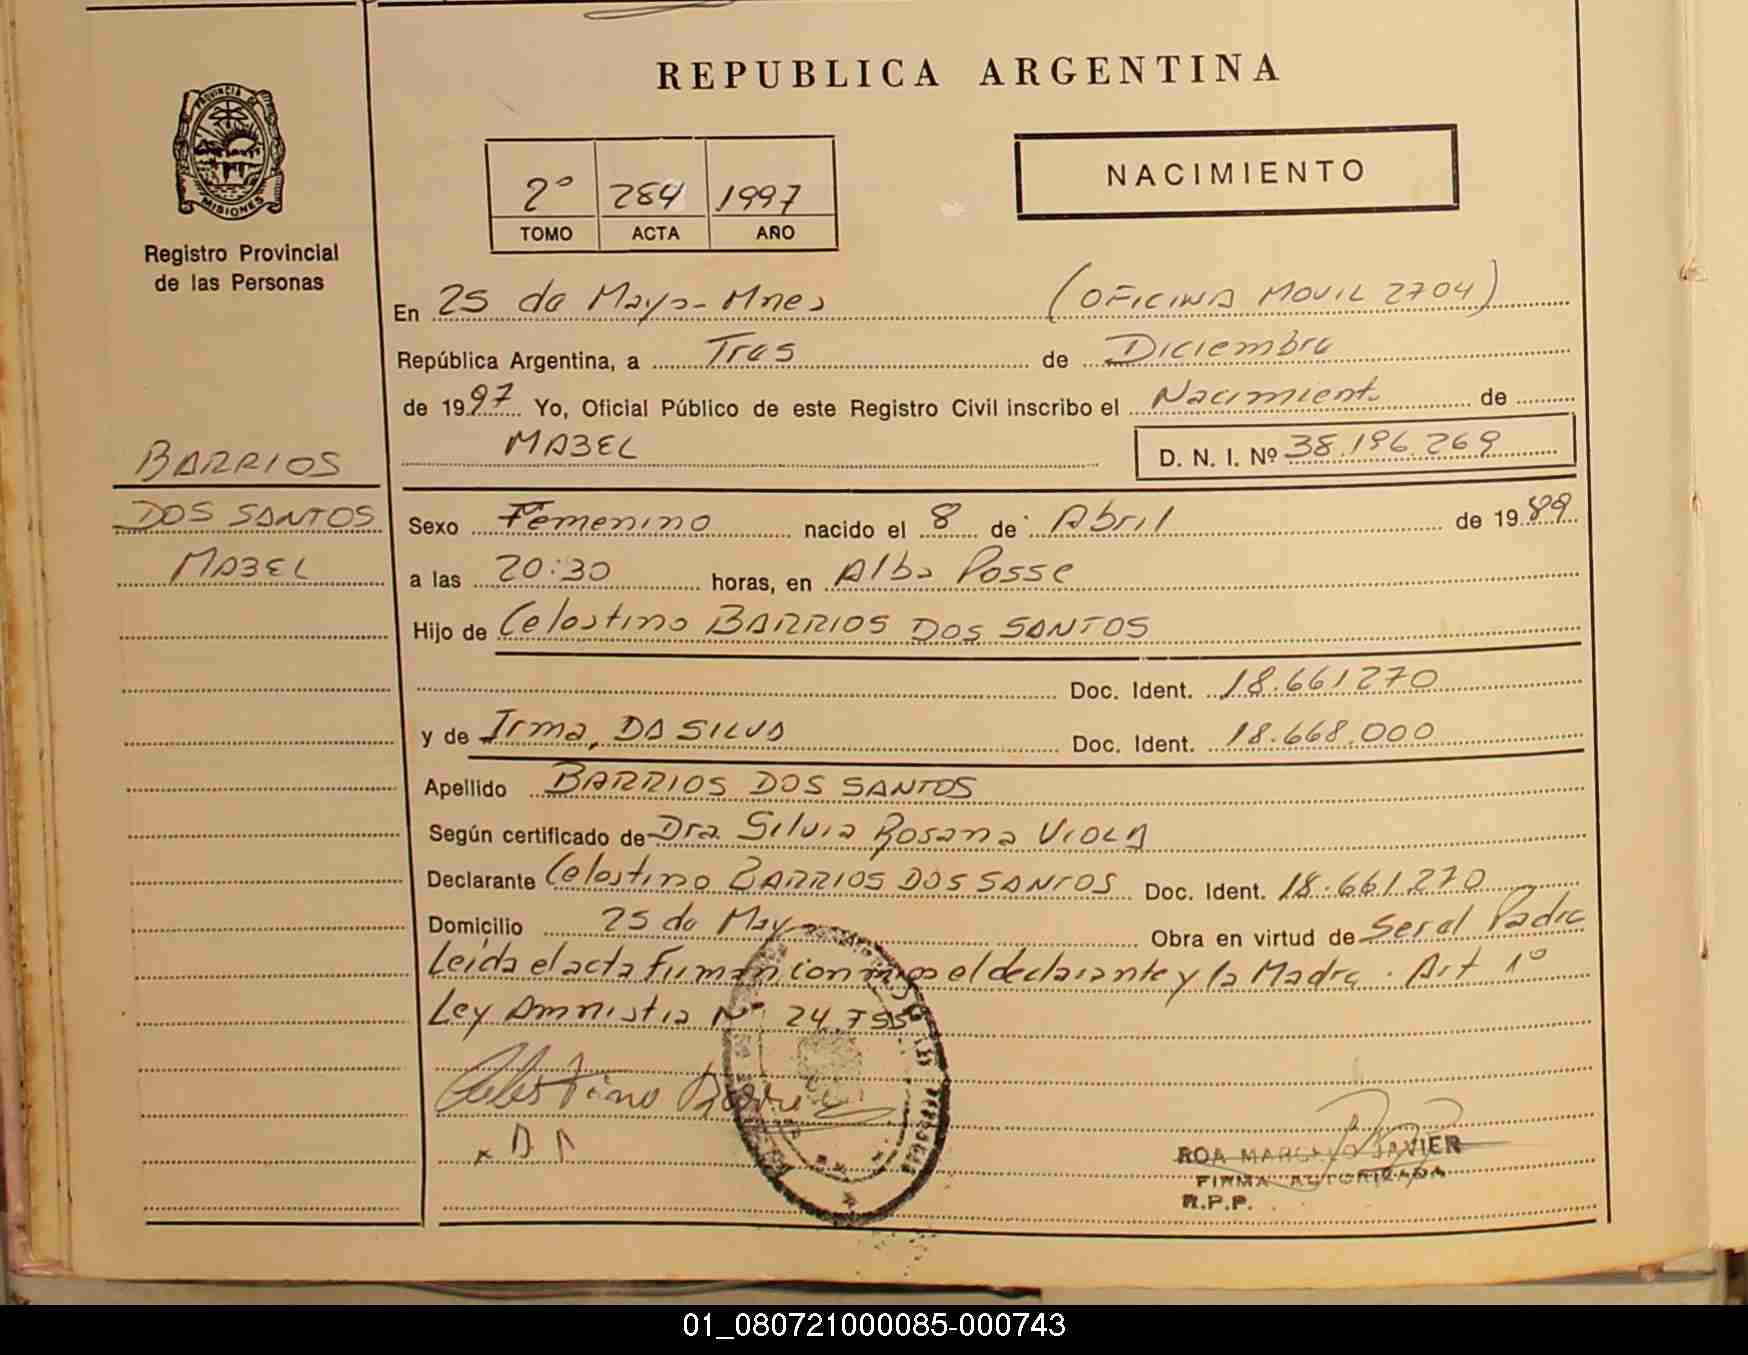 REPUBLICA ARGENTINA
PROVINCIA DE
MISIONES
Registro Provincial
de las Personas
2º 284 1997
TOMO ACTA AÑO
NACIMIENTO
En 25 de Mayo - Mnes (OFICINA MOVIL 2704)
República Argentina, a Tres de Diciembre
de 1997 Yo, Oficial Público de este Registro Civil inscribo el Nacimiento de
MABEL D. N. I. Nº 38.196.269
BARRIOS
DOS SANTOS
MABEL
Sexo Femenino nacido el 8 de Abril de 1989
a las 20:30 horas, en Alba Posse
Hijo de Celestino BARRIOS DOS SANTOS
Doc. Ident. 18.661270
y de Irma, DA SILVA Doc. Ident. 18.668.000
Apellido BARRIOS DOS SANTOS
Según certificado de Dra. Silvia Rosana VIOLA
Declarante Celestino BARRIOS DOS SANTOS Doc. Ident. 18.661.270
Domicilio 25 de Mayo Obra en virtud de Ser el Padre
Leída el acta Firman conmigo el declarante y la Madre. Art 1º
Ley Amnistia Nº 24.755
Celestino Barrios
ROA MARCELO JAVIER
FIRMA AUTORIZADA
R.P.P.
01_080721000085-000743